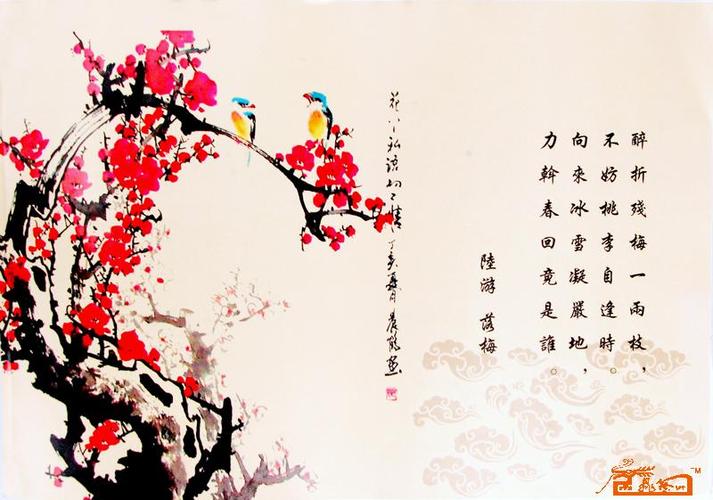 醉折殘梅一兩枝，
不妨桃李自逢時。
向來冰雪凝嚴地，
力斡春回竟是誰。
陸游 落梅
花 語 情 丁亥